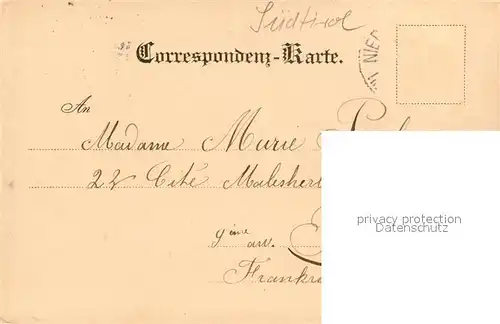 Südtirol
NIED
Correspondenz-Karte.
An
Madame Marie
22 Cité Malesherb
9ième arr.
Frankr
privacy protection
Datenschutz